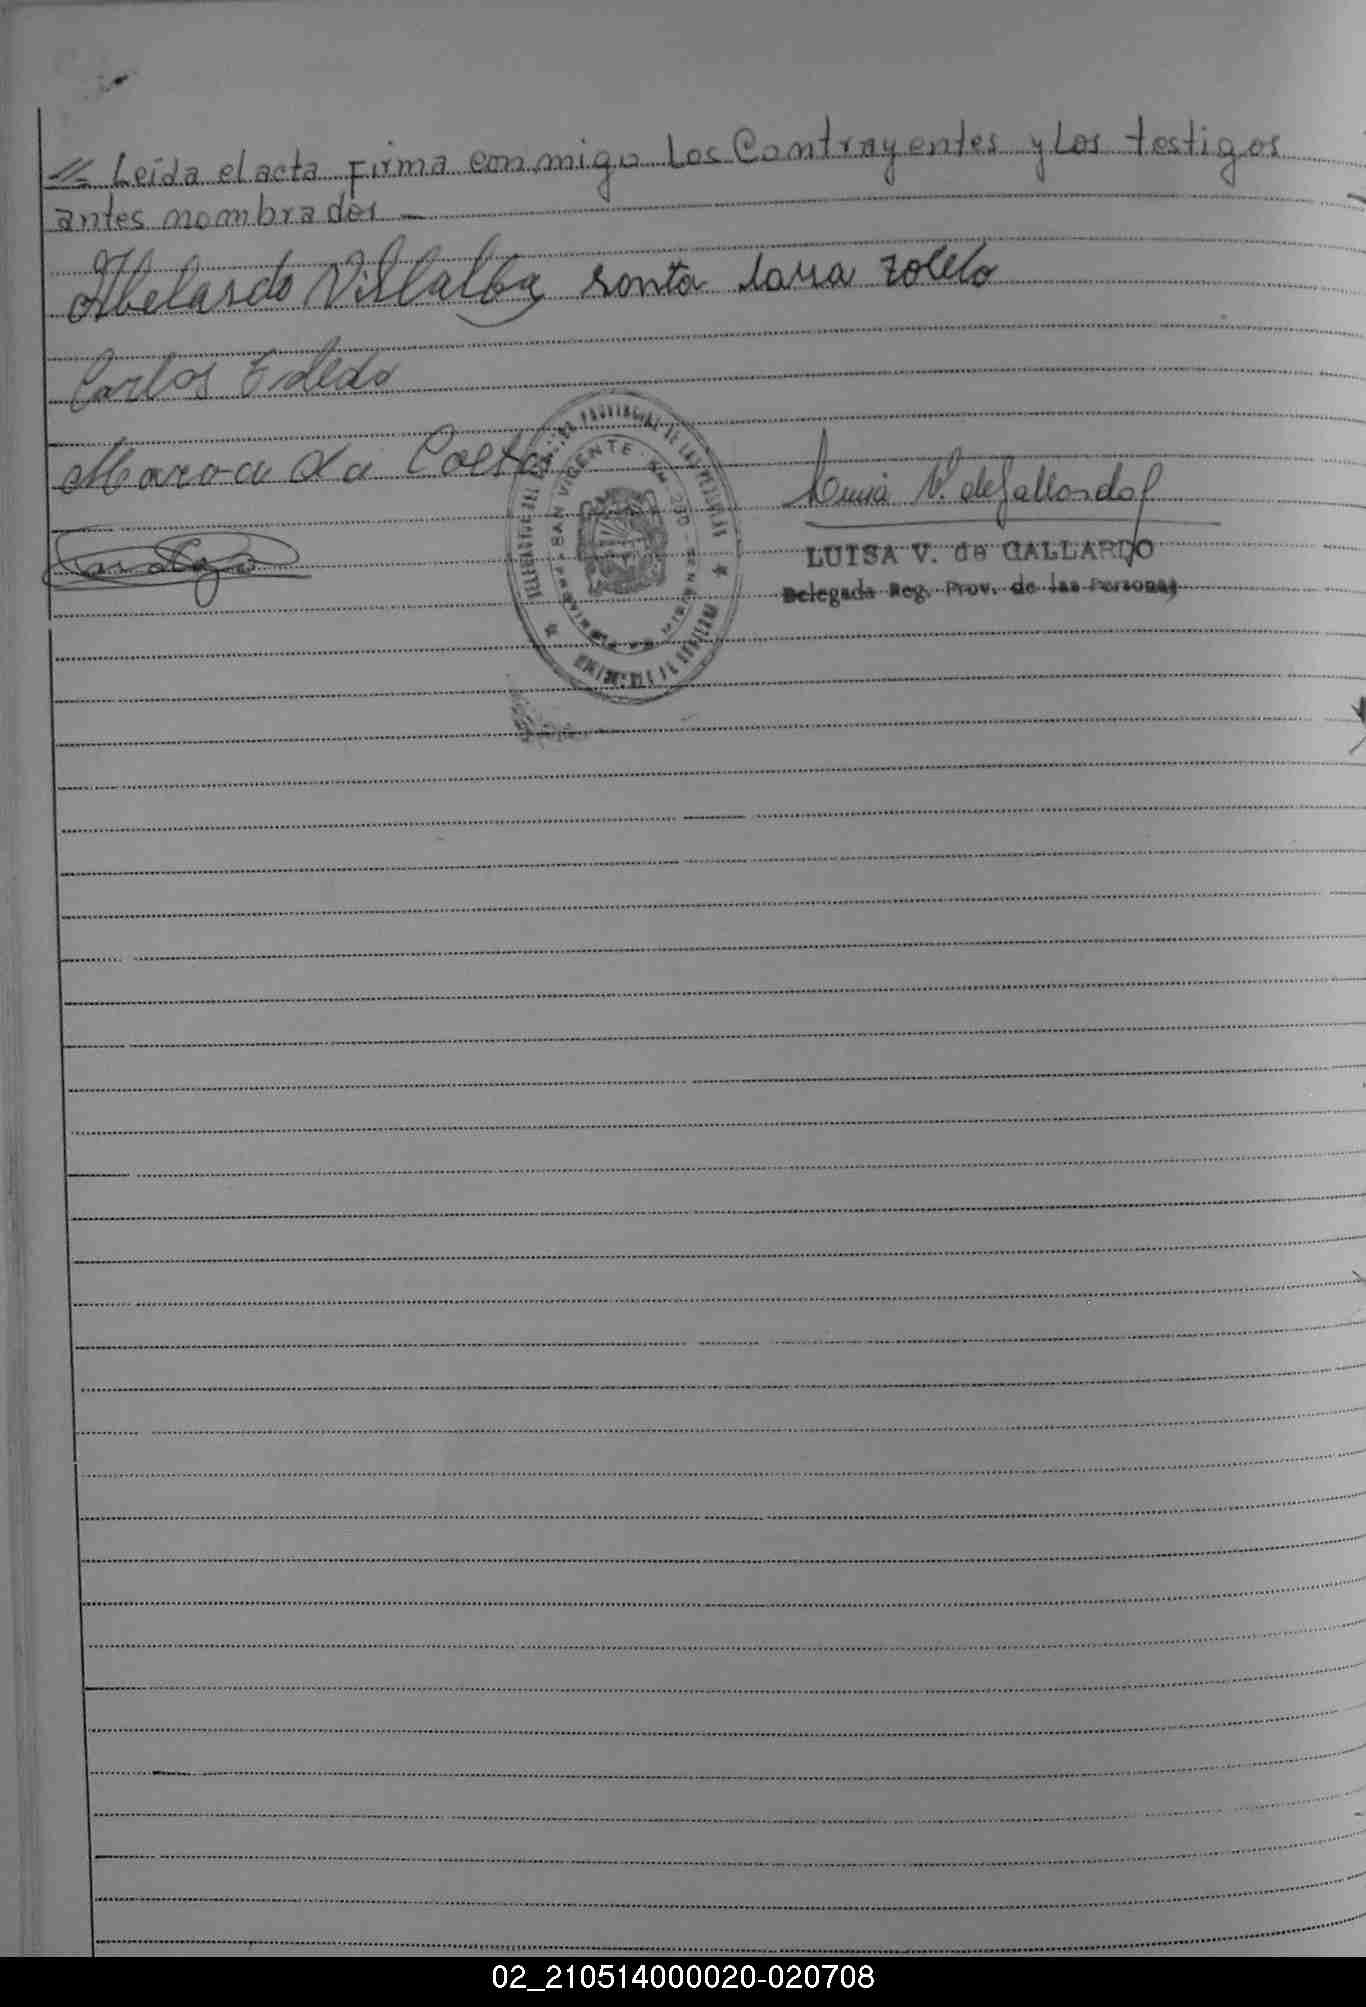 // Leida el acta Firma conmigo Los Contrayentes y Los testigos
antes nombrados —
Abelardo Villalba
Carlos Toledo
SAN VICENTE
Luisa V. de Gallardo
LUISA V. de GALLARDO
Delegada Reg. Prov. de las Personas
02_210514000020-020708